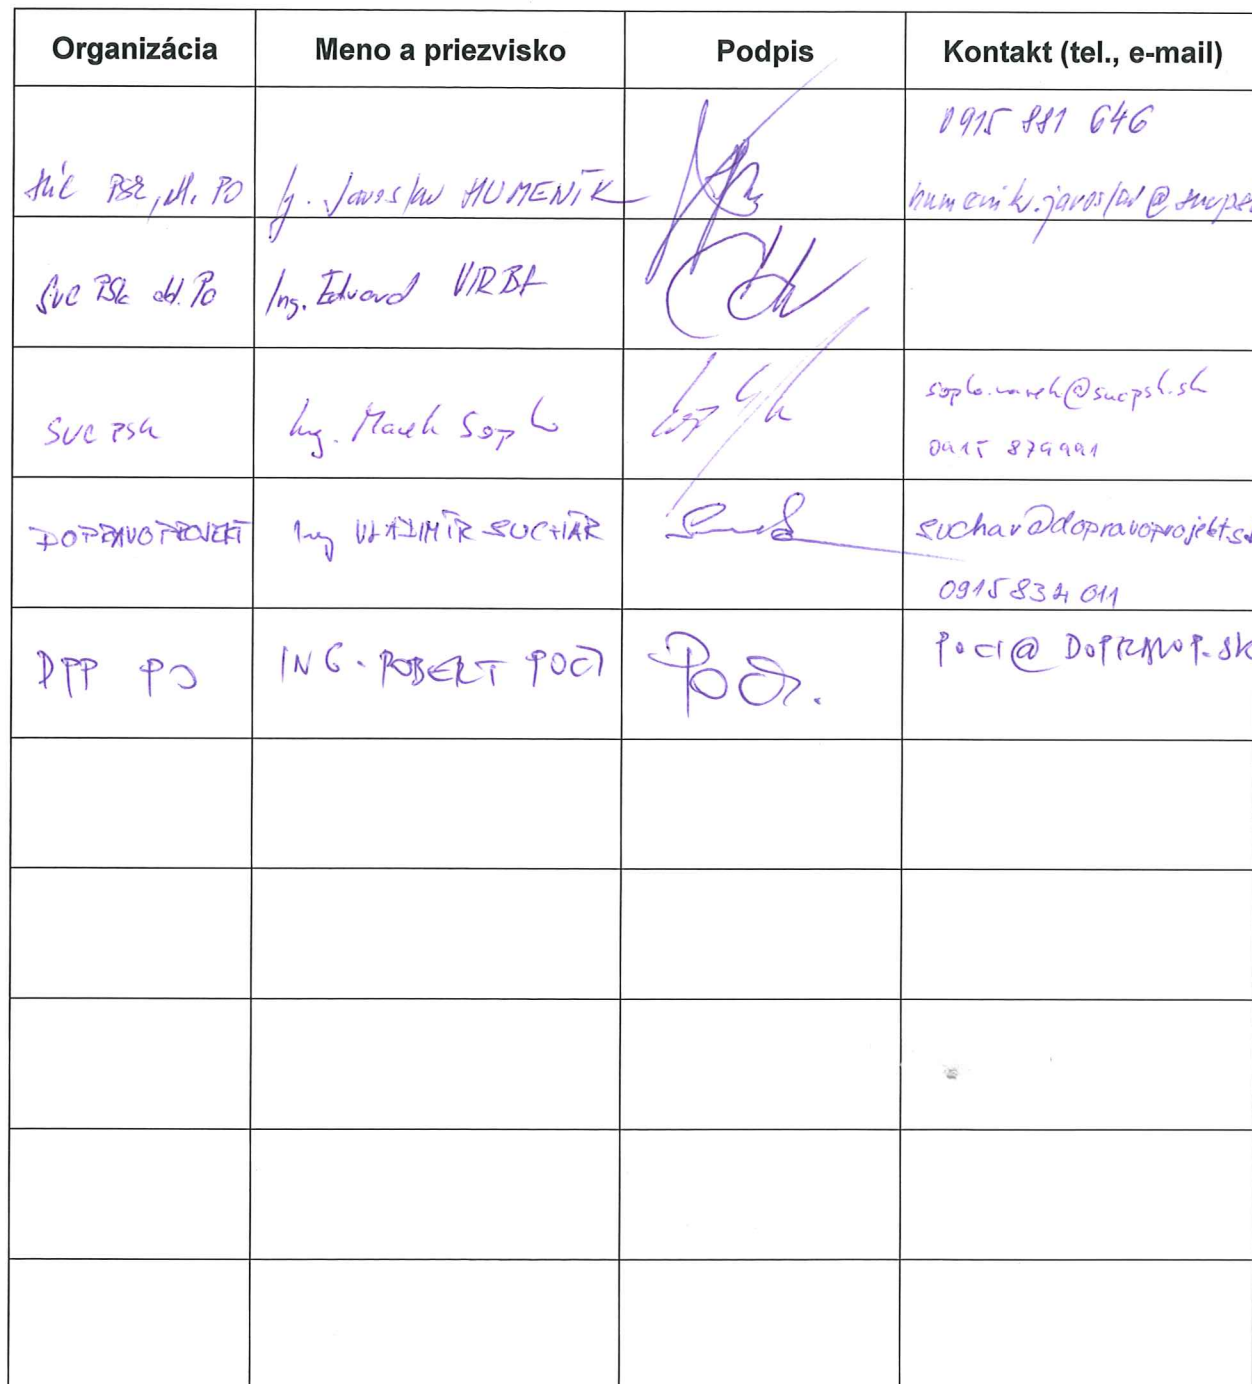 Organizácia Meno a priezvisko Podpis Kontakt (tel., e-mail)
0915 881 646
PSK, PO Jaroslav HUMENÍK humenik.jaroslav@sucpsk
SUC PSK obl. PO Ing. Eduard VIRBA
SUC PSK Ing. Marek Sopko sopko.marek@sucpsk.sk
0915 879991
DOPRAVOPROJEKT Ing VLADIMÍR SUCHÁR suchar@dopravoprojekt.sk
0915 834 011
DPP PO ING. ROBERT POCI POCI@DOPRAVOP.SK